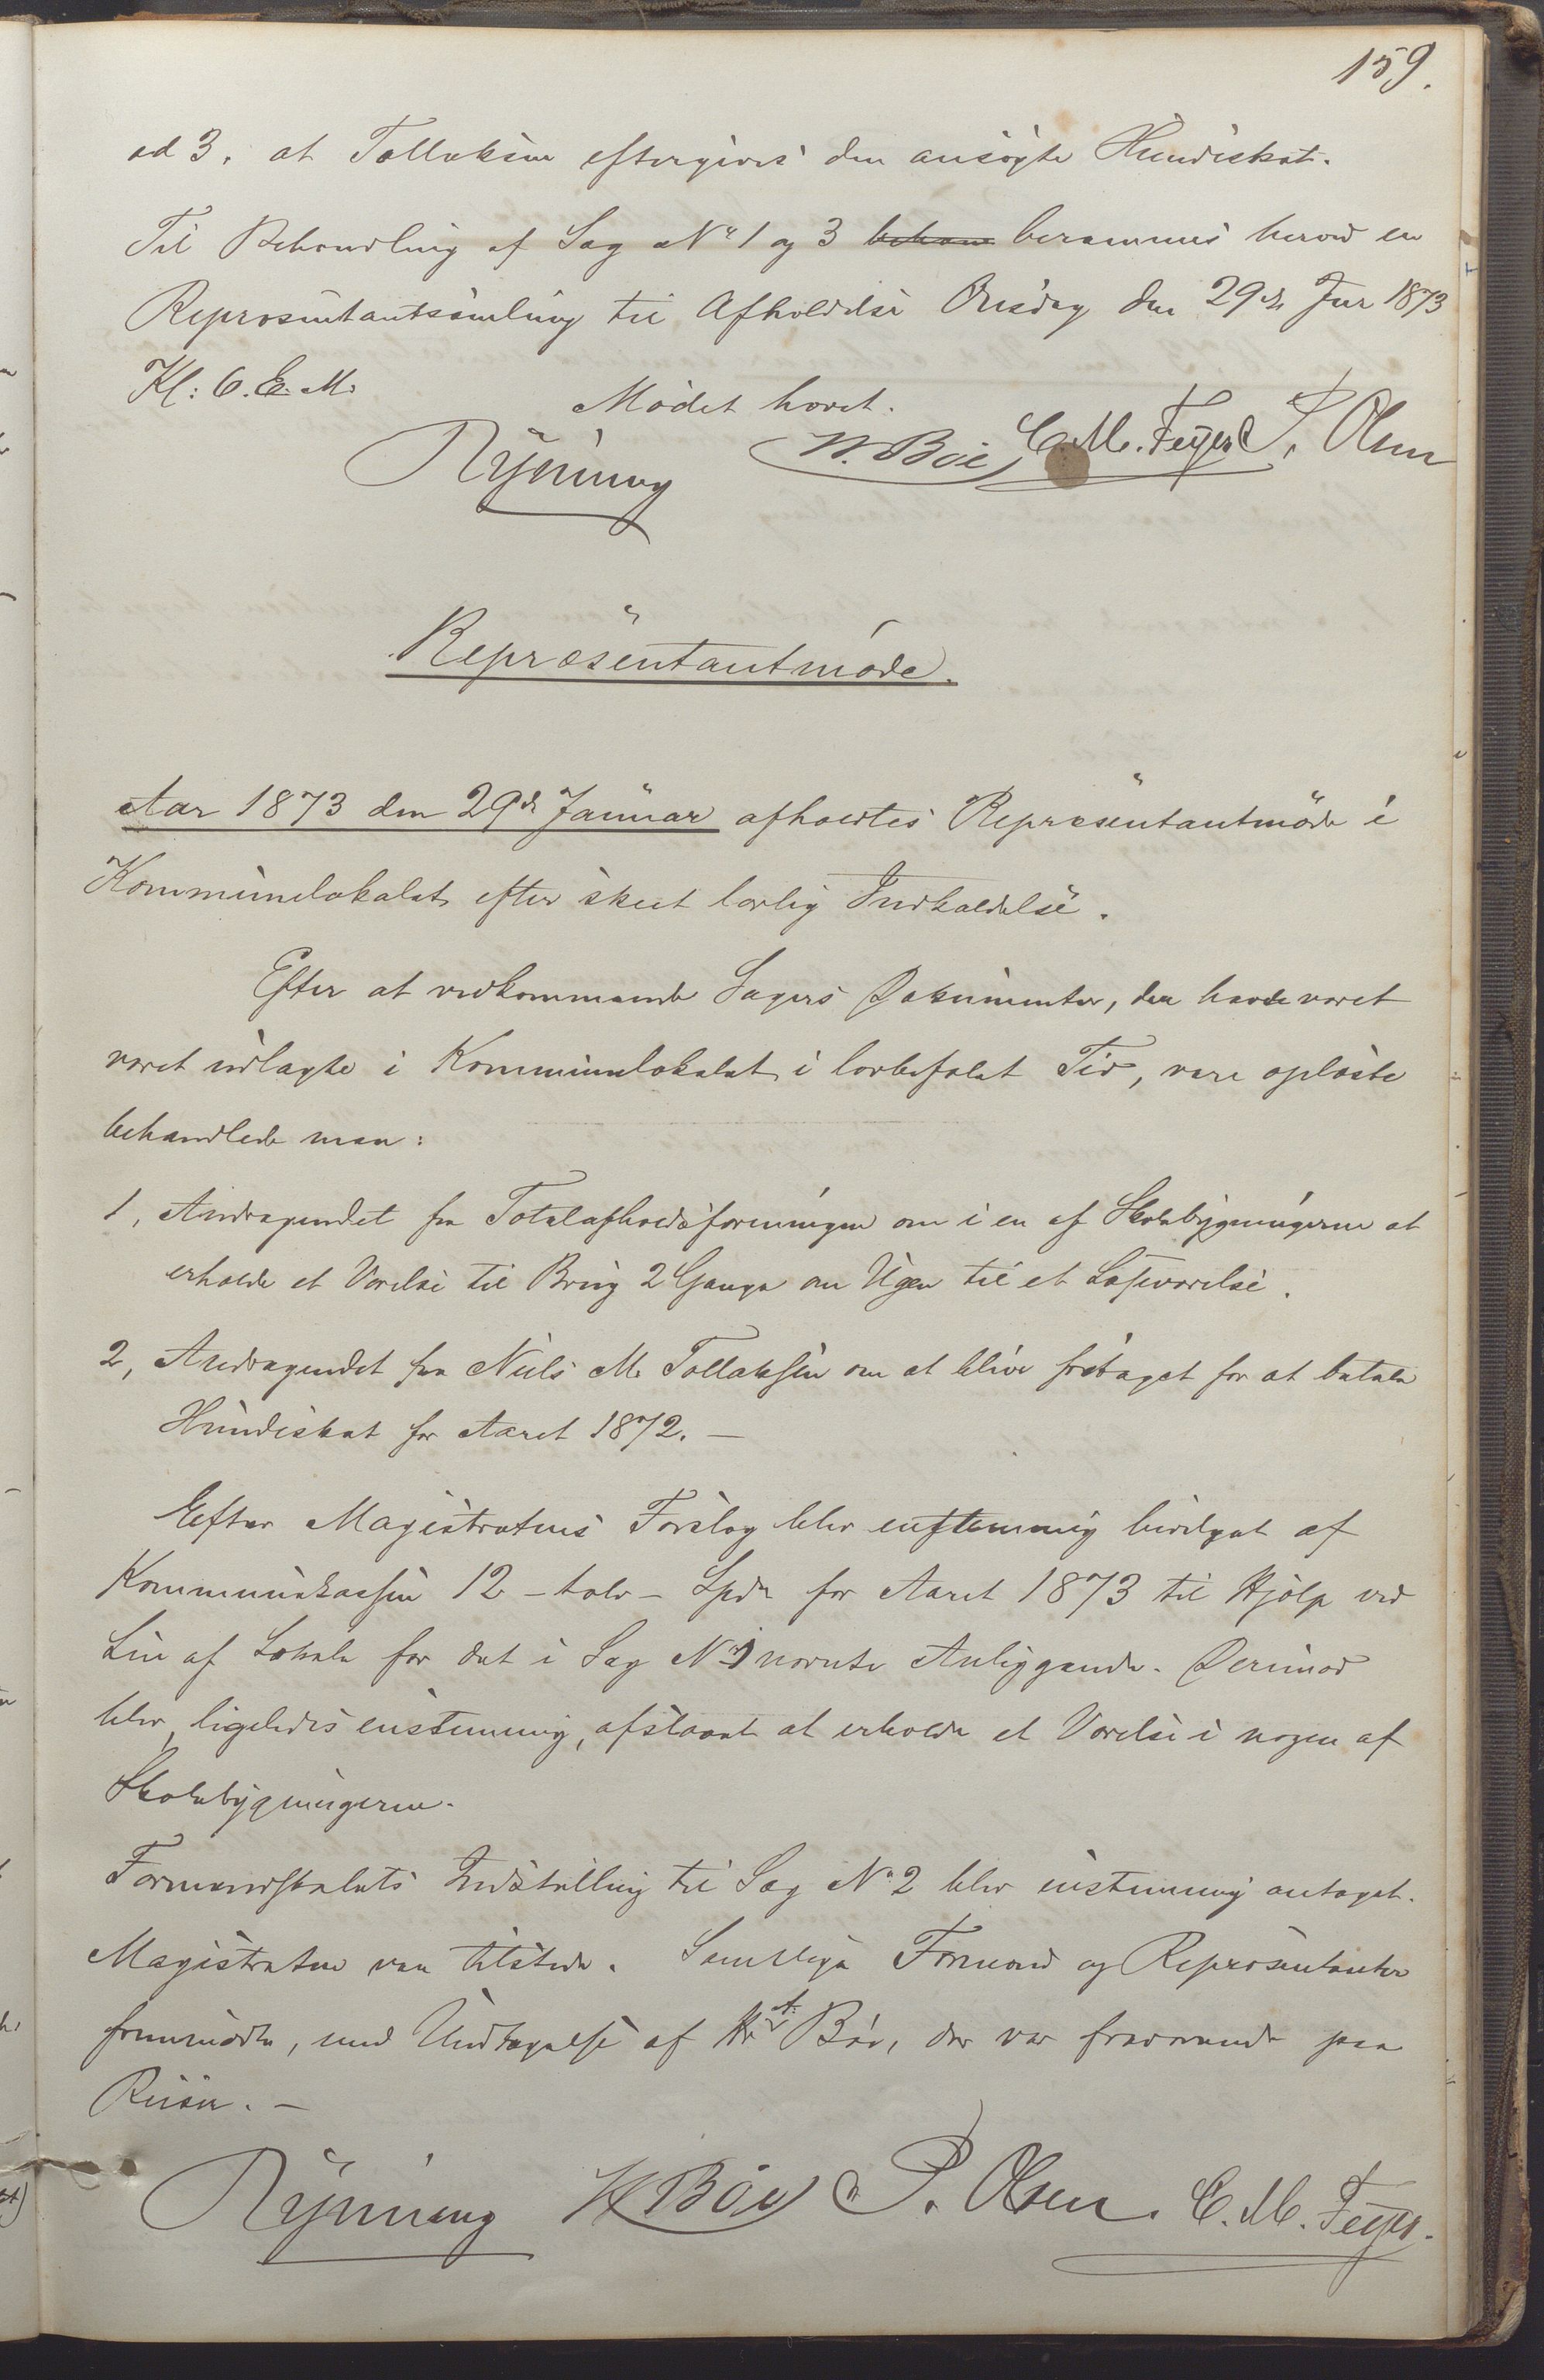 159.
ad 3. at Tollaksen eftergives den ansøgte Hundeskat.
Til Behandling af Sag No 1 og 3 beham berammes herved en
Repræsentantsamling til Afholdelse Onsdag den 29de Jnr 1873
Kl: 6. E. M.
Mødet hævet.
Rÿnning W. Bøe C. M. Feyer P. Olsen
Repræsentantmøde.
Aar 1873 den 29de Januar afholdtes Repræsentantmøde i
Kommunelokalet efter skeet lovlig Indkaldelse.
Efter at vedkommende Sagers Dokumenter, der havde været
været udlagte i Kommunelokalet i lovbefalet Tid, vare oplæste
behandlede man:
1, Andragendet fra Totalafholdsforeningen om i en af Skolebygningerne at
erholde et Værelse til Brug 2 Gange om Ugen til et Læseværelse.
2, Andragendet fra Niels M. Tollaksen om at blive fritaget for at betale
Hundeskat for Aaret 1872. —
Efter Magistratens Forslag blev enstemmig bevilget af
Kommunekassen 12 - tolv - Spdr for Aaret 1873 til Hjælp ved
Leie af Lokale for det i Sag No 1 nævnte Anliggende. Derimod
blev, ligeledes enstemmig, afslaaet at erholde et Værelse i nogen af
Skolebygningerne.
Formandskabets Indstilling til Sag No 2 blev enstemmig antaget.
Magistraten var tilstede. Samtlige Formænd og Repræsentanter
fremmødte, med Undtagelse af Hr A. Bøe, der var fraværende paa
Reiser. —
Rÿnning W Bøe P. Olsen. C. M. Feyer.